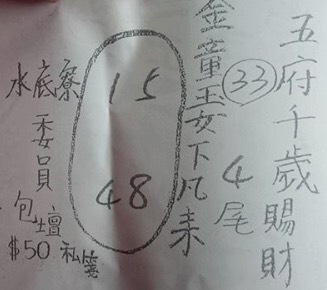 五府千歲賜財
金童玉女下凡來
33
4尾
15
48
水底寮
委員
包壇
$50 私箋